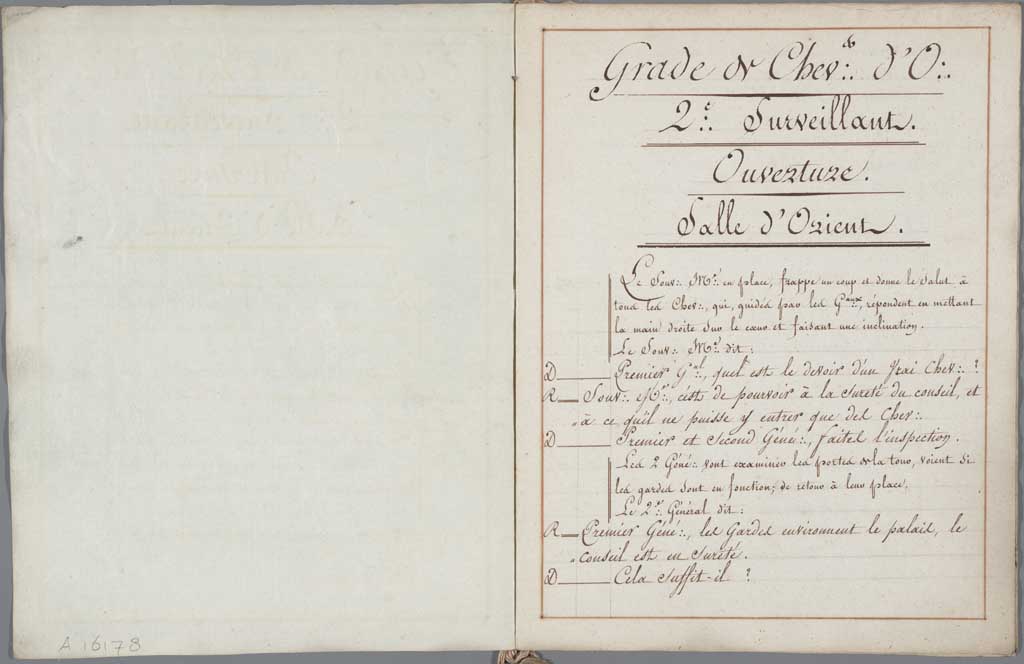 A 16178
Grade de Chev:. d'O:.
2e:. Surveillant.
Ouverture.
Salle d'Orient.
Le Souv:. Me:. en place, frappe un coup et donne le salut à
tous les Chev:., qui, guidés par les Gaux:., répondent en mettant
la main droite sur le cœur et faisant une inclination.
Le Souv:. Me:. dit:
D ____ Premier Gal:., quel est le devoir d'un vrai Chev:. ?
R __ Souv:. Me:., c'est de pourvoir à la sureté du conseil, et
„ à ce qu'il ne puisse y entrer que des Chev:.
D ____ Premier et Second Géné:., faites l'inspection.
Les 2 Géné:. vont examiner les portes de la tour, voient si
les gardes sont en fonction; de retour à leur place,
Le 2e:. Général dit:
R __ Premier Géné:., les Gardes environnent le palais, le
„ conseil est en sureté.
D ____ Cela suffit-il ?